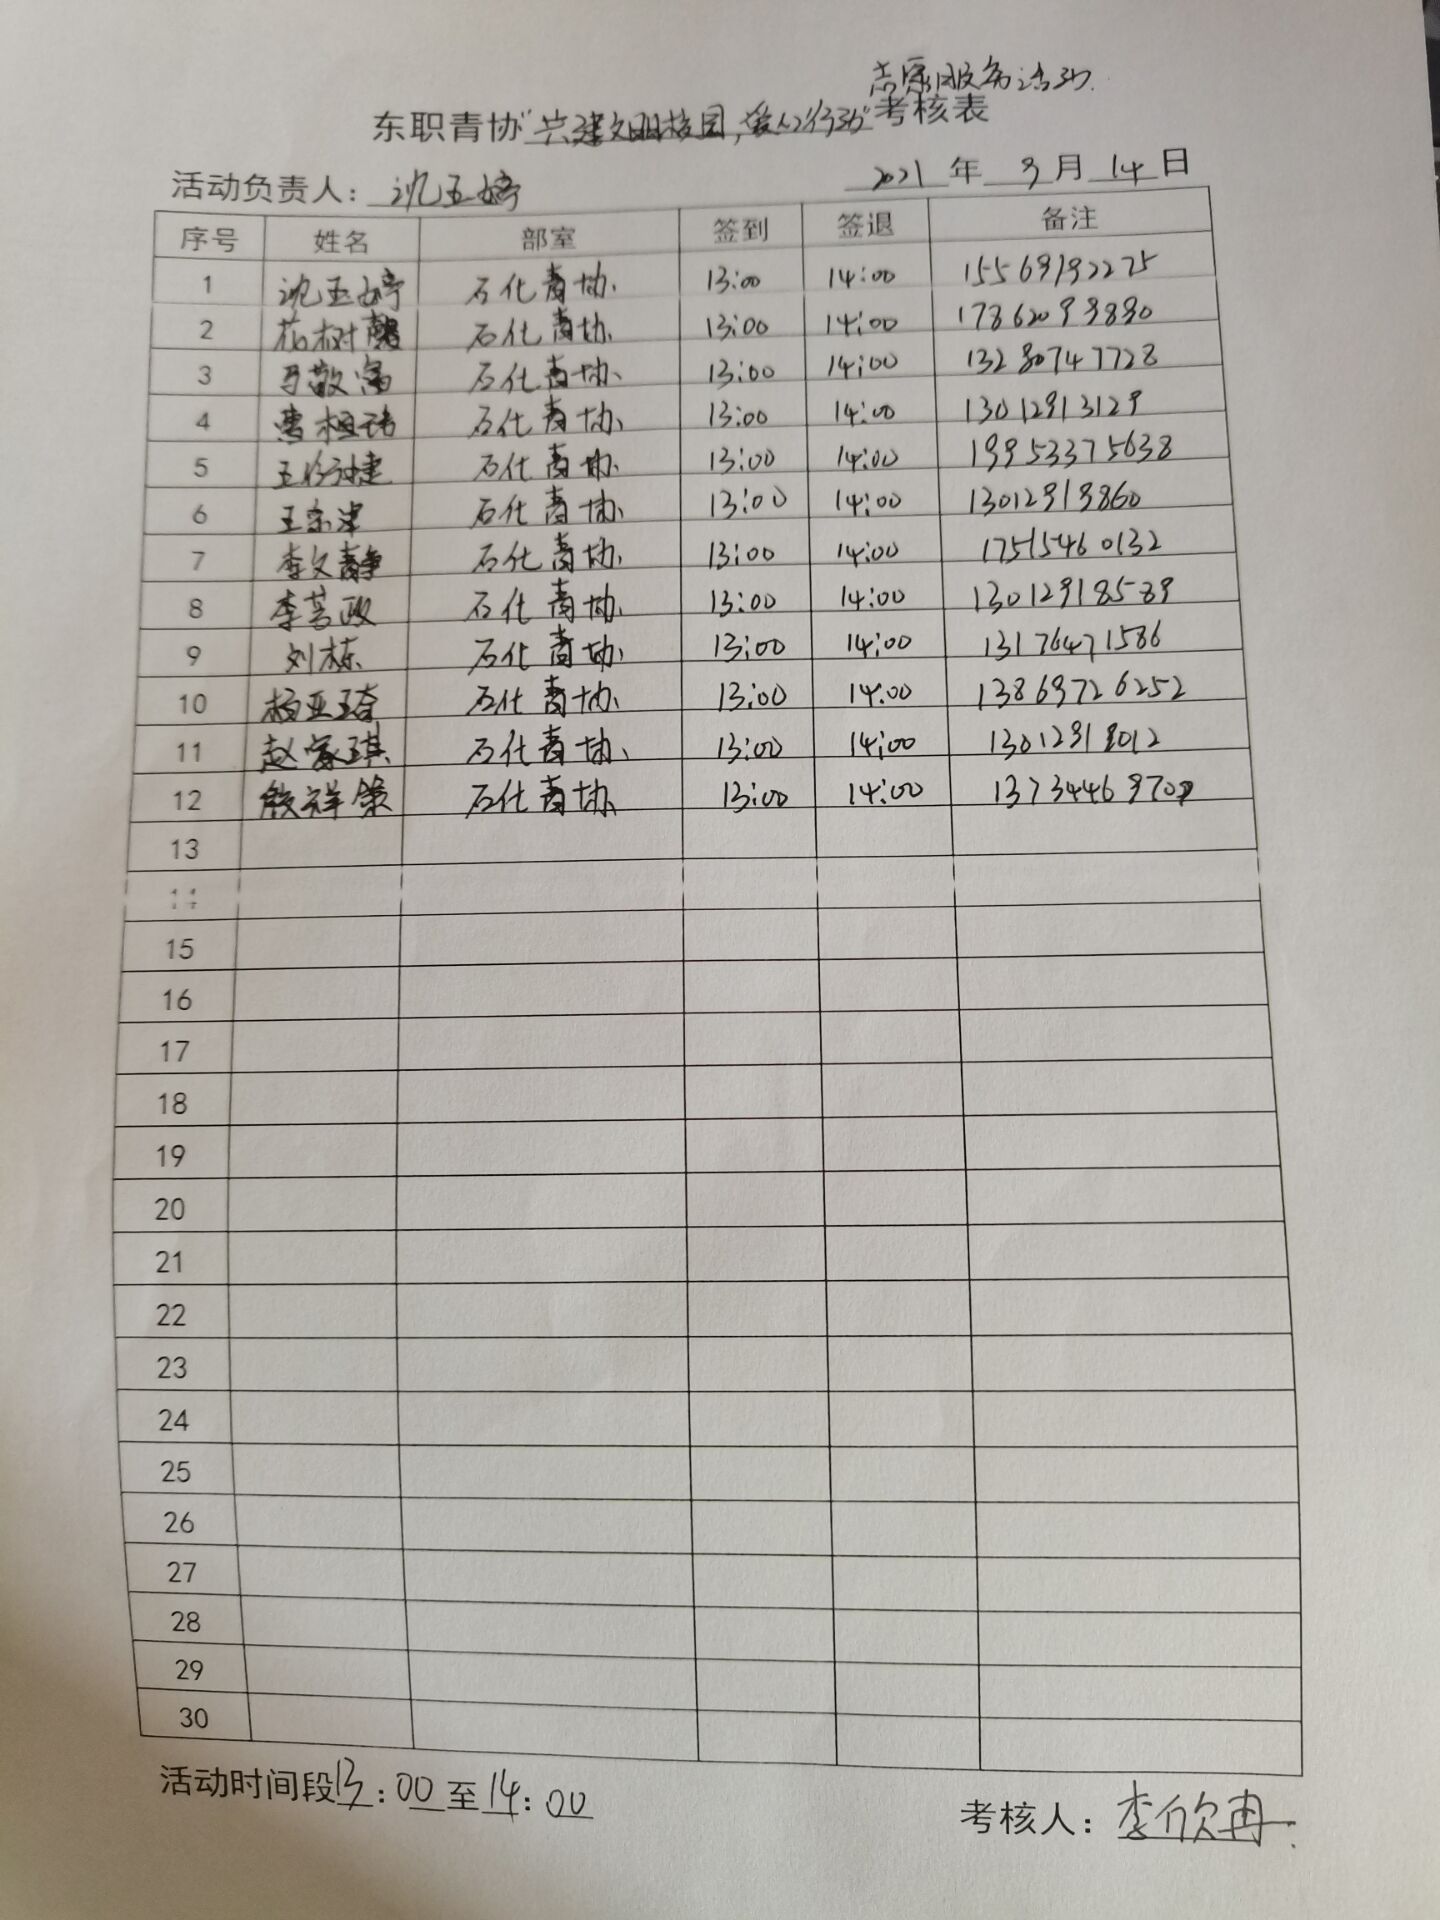 志愿服务活动.
东职青协"共建文明校园,爱心行动"考核表
活动负责人: 沈玉婷 2021 年 3 月 14 日
序号 姓名 部室 签到 签退 备注
1 沈玉婷 石化青协. 13:00 14:00 15569192275
2 石化青协. 13:00 14:00 17862099890
3 石化青协. 13:00 14:00 13280747728
4 石化青协. 13:00 14:00 13012913129
5 石化青协. 13:00 14:00 19953375638
6 王宗津 石化青协. 13:00 14:00 13012919860
7 李文静 石化青协. 13:00 14:00 17515460132
8 石化青协. 13:00 14:00 13012918589
9 刘栋 石化青协. 13:00 14:00 13176471586
10 杨亚琦 石化青协. 13:00 14:00 13869726252
11 赵家琪 石化青协. 13:00 14:00 13012918012
12 石化青协. 13:00 14:00
13
14
15
16
17
18
19
20
21
22
23
24
25
26
27
28
29
30
活动时间段13:00至14:00
考核人: 李欣冉.